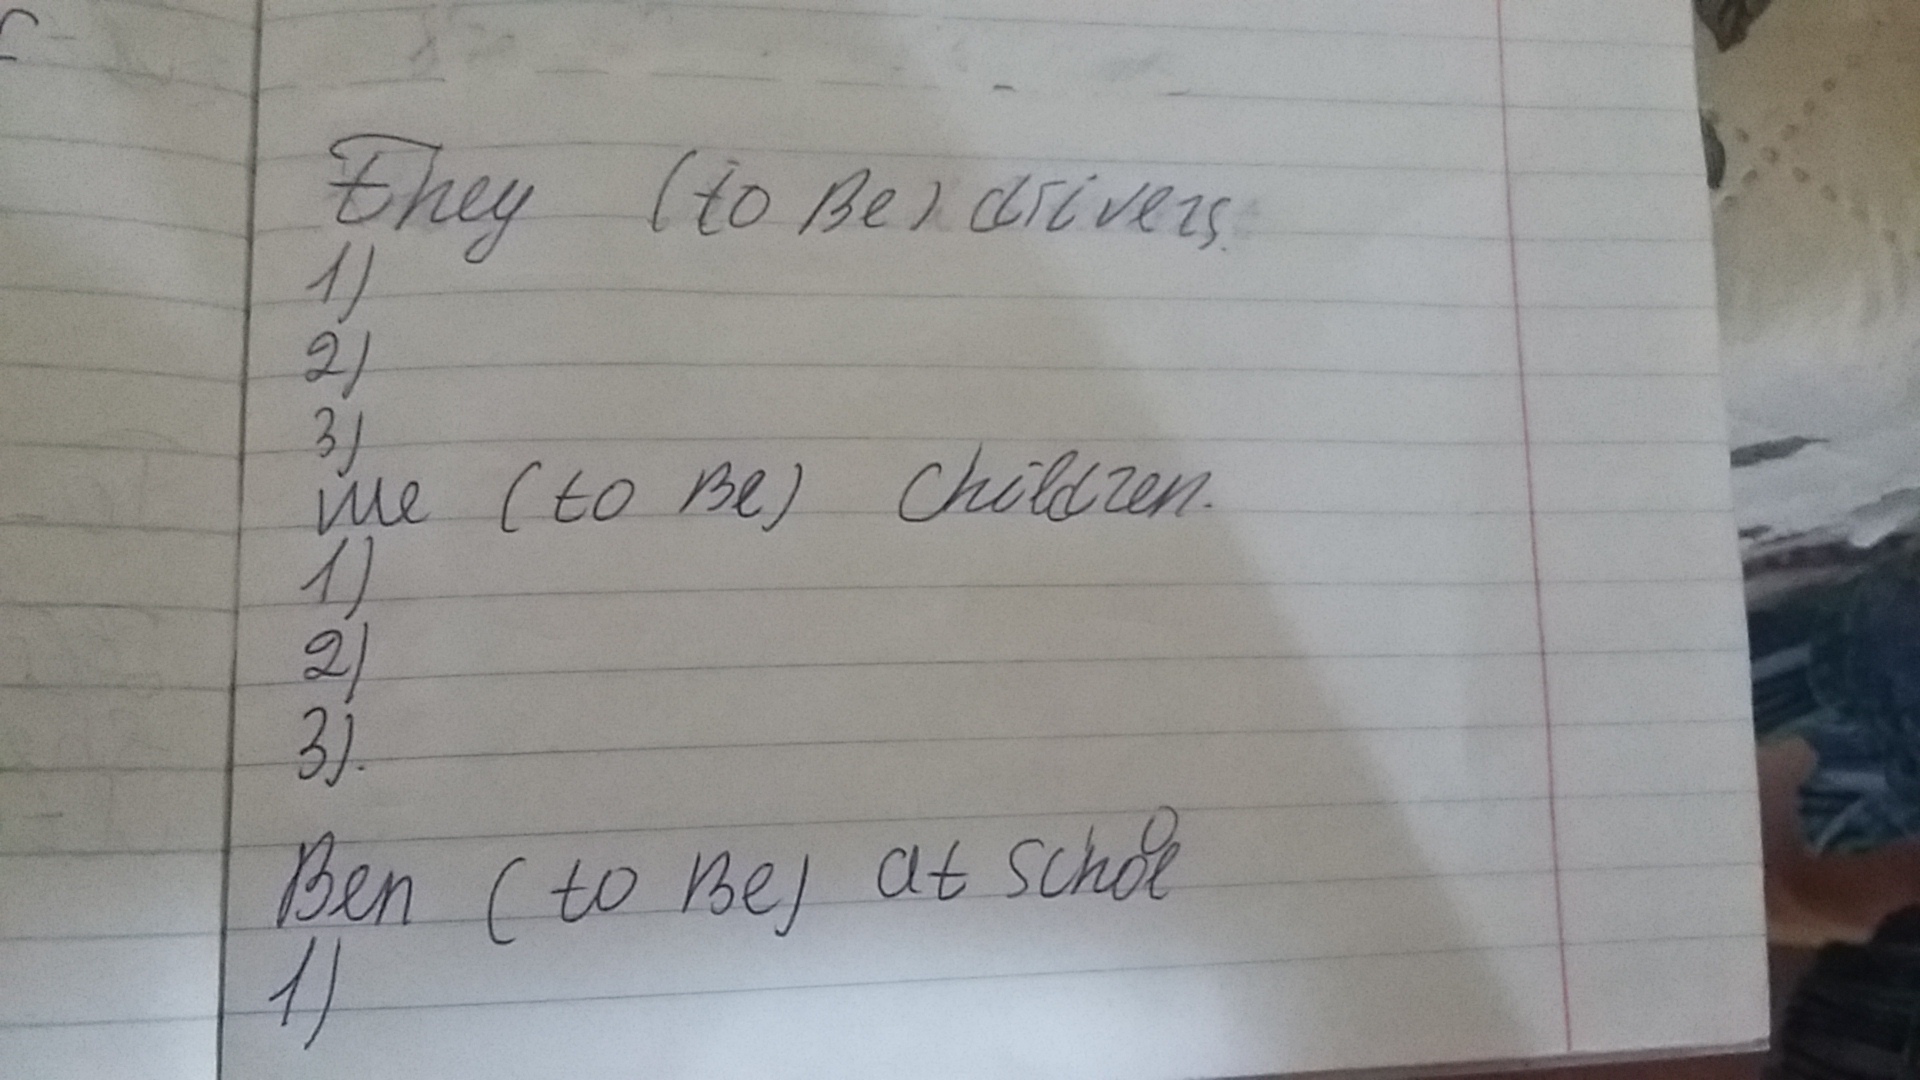 They (to Be) drivers.
1)
2)
3)
We (to Be) Children.
1)
2)
3).
Ben (to Be) at school
1)